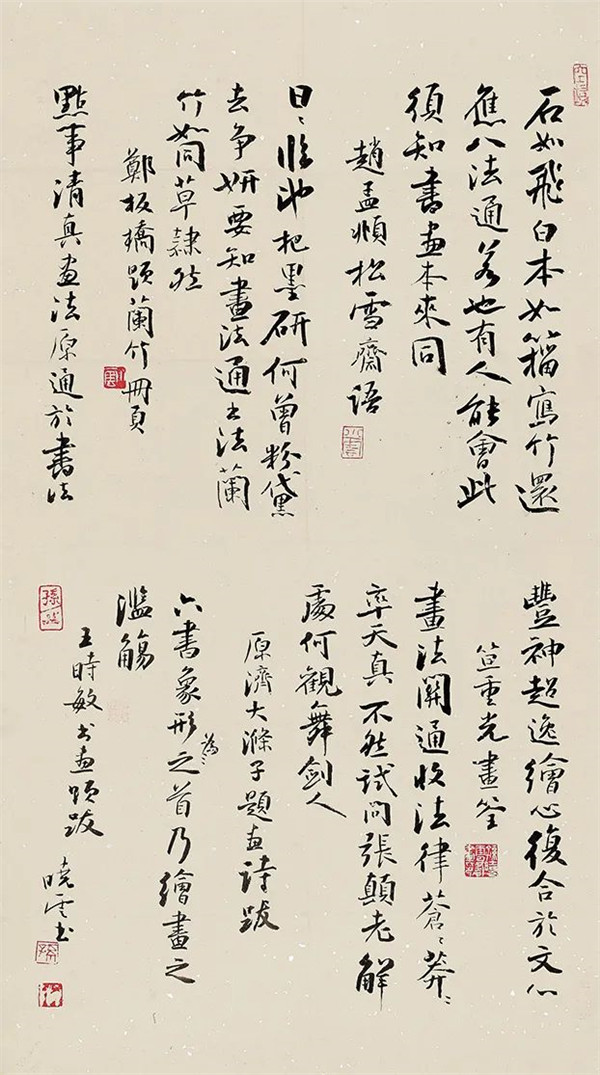 石如飛白本如籀寫竹還
應八法通若也有人能會此
須知書畫本來同
趙孟頫松雪齋語
日〻臨池把墨研何曾粉黛
去争妍要知畫法通書法蘭
竹如同草隸然
鄭板橋題蘭竹冊頁
點事清真畫法原通於書法
豐神超逸繪心復合於文心
笪重光畫筌
畫法關通書法律蒼〻莽〻
率天真不然試問張顛老解
處何觀舞劍人
原濟大滌子題畫詩跋
六書象形之為首乃繪畫之
濫觴
王時敏書畫題跋
曉雲書